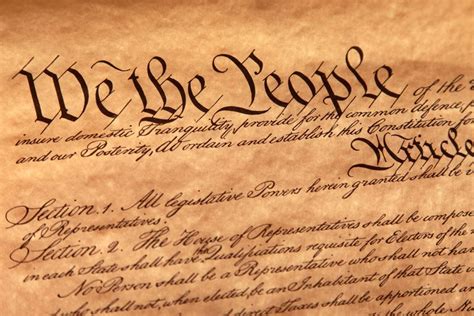 We the People of the
insure domestic Tranquility, provide for the common defence,
and our Posterity, do ordain and establish this Constitution for
Article
Section. 1. All legislative Powers herein granted shall be
of Representatives.
Section. 2. The House of Representatives shall be compos
in each State shall have the Qualifications requisite for Electors of the
No Person shall be a Representative who shall not
who shall not, when elected, be an Inhabitant of that State
direct Taxes shall be apportioned